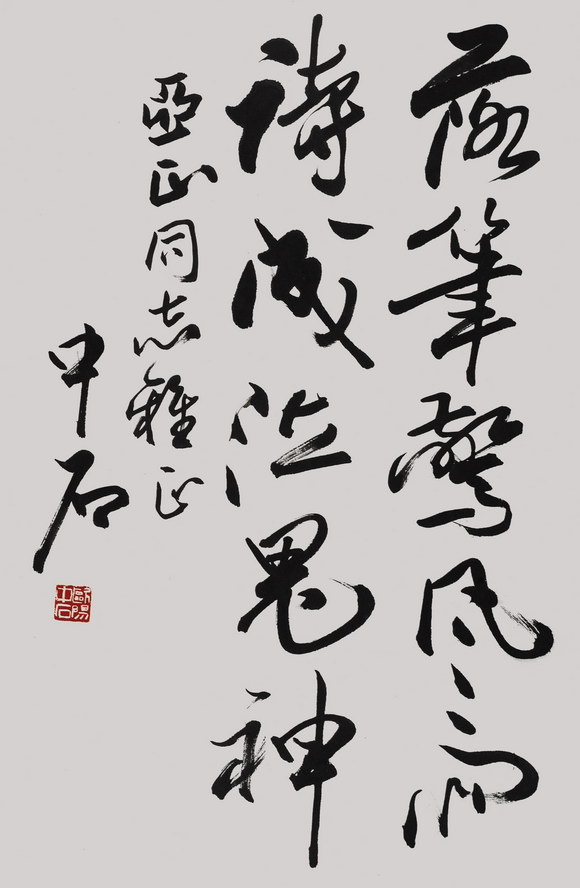 落筆驚風雨
詩成泣鬼神
亞正同志雅正
中石
歐陽
中石